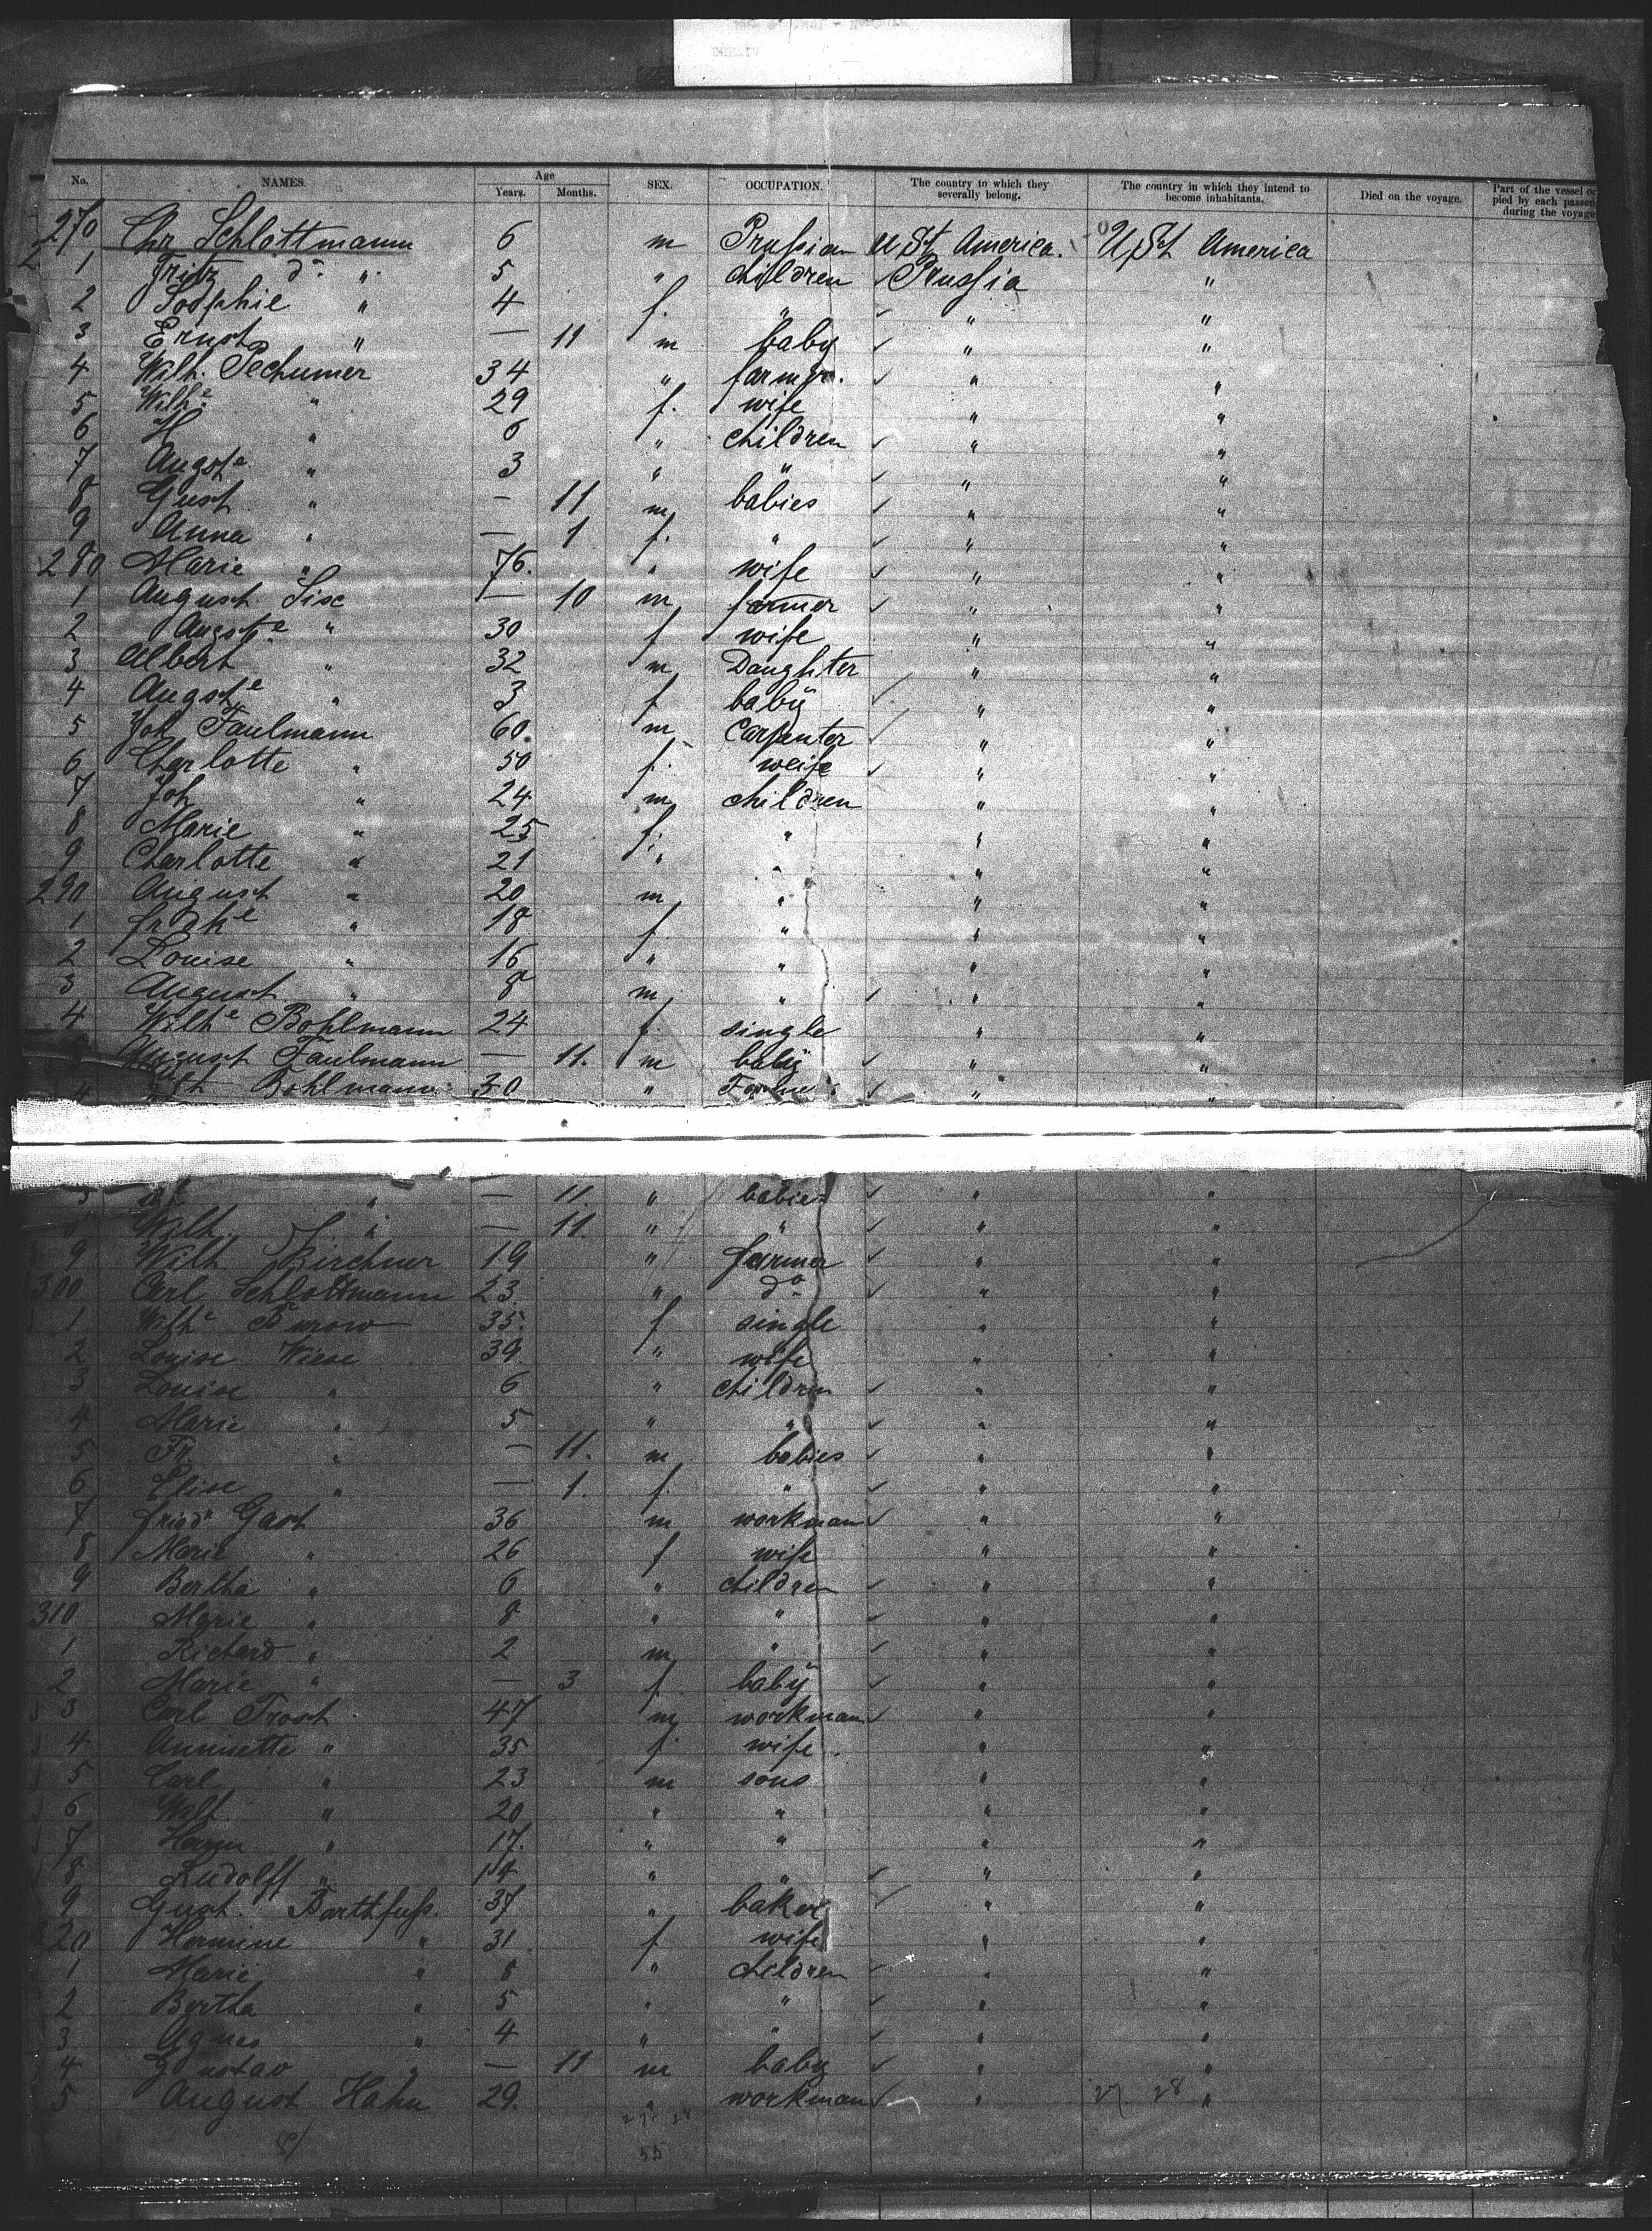 No. NAMES. Age Years. Months. SEX. OCCUPATION. The country to which they severally belong. The country in which they intend to become inhabitants. Died on the voyage. Part of the vessel oc pied by each passen during the voyage
270 Chr Schlottmann 6 m Prussian U St America. U St America
1 Fritz do " 5 " children Prussia "
2 Soophie " 4 f. " " "
3 Ernst " — 11 m baby " "
4 Wilh. Pechumer 34 " farmer. " "
5 Wilhe " 29 f. wife " "
6 H " 6 " children " "
7 Augste " 3 " " " "
8 Gust " — 11 m babies " "
9 Anna " — 1 f. " " "
280 Marie " 76. " wife " "
1 August — 10 m farmer " "
2 Augste " 30 f wife " "
3 Albert " 32 m Daughter " "
4 Augste " 3 f baby " "
5 Joh Faulmann 60. m Carpenter " "
6 Charlotte " 50 f. weife " "
7 Joh " 24 m children " "
8 Marie " 25 f. " " "
9 Charlotte " 21 " " " "
290 August " 20 m " " "
1 frdke " 18 f " " "
2 Louise " 16 " " " "
3 August " 8 m " " "
4 Wilhe Bohlmann 24 f. single " "
August Faulmann — 11. m baby " "
Bohlmann 30 " " "
— 11. " babies " "
8 Wilh. " — 11. " " " "
9 Wilh Kirchner 19 " farmer " "
300 Carl Schlottmann 23. " do " "
1 Wilhe Burow 35. f single " "
2 Louise Wiese 39. " wife " "
3 Louise " 6 " children " "
4 Marie " 5 " " " "
5 Fr " — 11. m babies " "
6 Elise " — 1. f. " " "
7 friedr Gast 36 m workman " "
8 Marie " 26 f wife " "
9 Bertha " 6 " children " "
310 Marie " 8 " " " "
1 Richard " 2 m " " "
2 Marie " — 3 f. baby " "
3 Carl Trost 47 m workman " "
4 Annisette " 35 f wife " "
5 Carl " 23 m sons " "
6 Wilh. " 20 " " " "
7 Herm " 17. " " " "
8 Rudolff " 14 " " " "
9 Gust. Barthfuss. 37 " baker " "
20 Hermine " 31 f wife " "
1 Marie " 8 " children " "
2 Bertha " 5 " " " "
3 Agnes " 4 " " " "
4 Gustav " — 11 m baby " "
5 August Hahn 29. " workman " 27 28 "
55